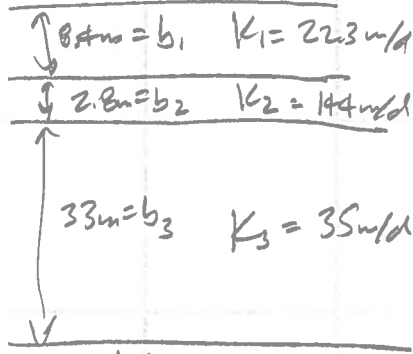 8.4m = b₁ K₁ = 22.3 m/d
2.8m = b₂ K₂ = 144 m/d
33m = b₃ K₃ = 35 m/d